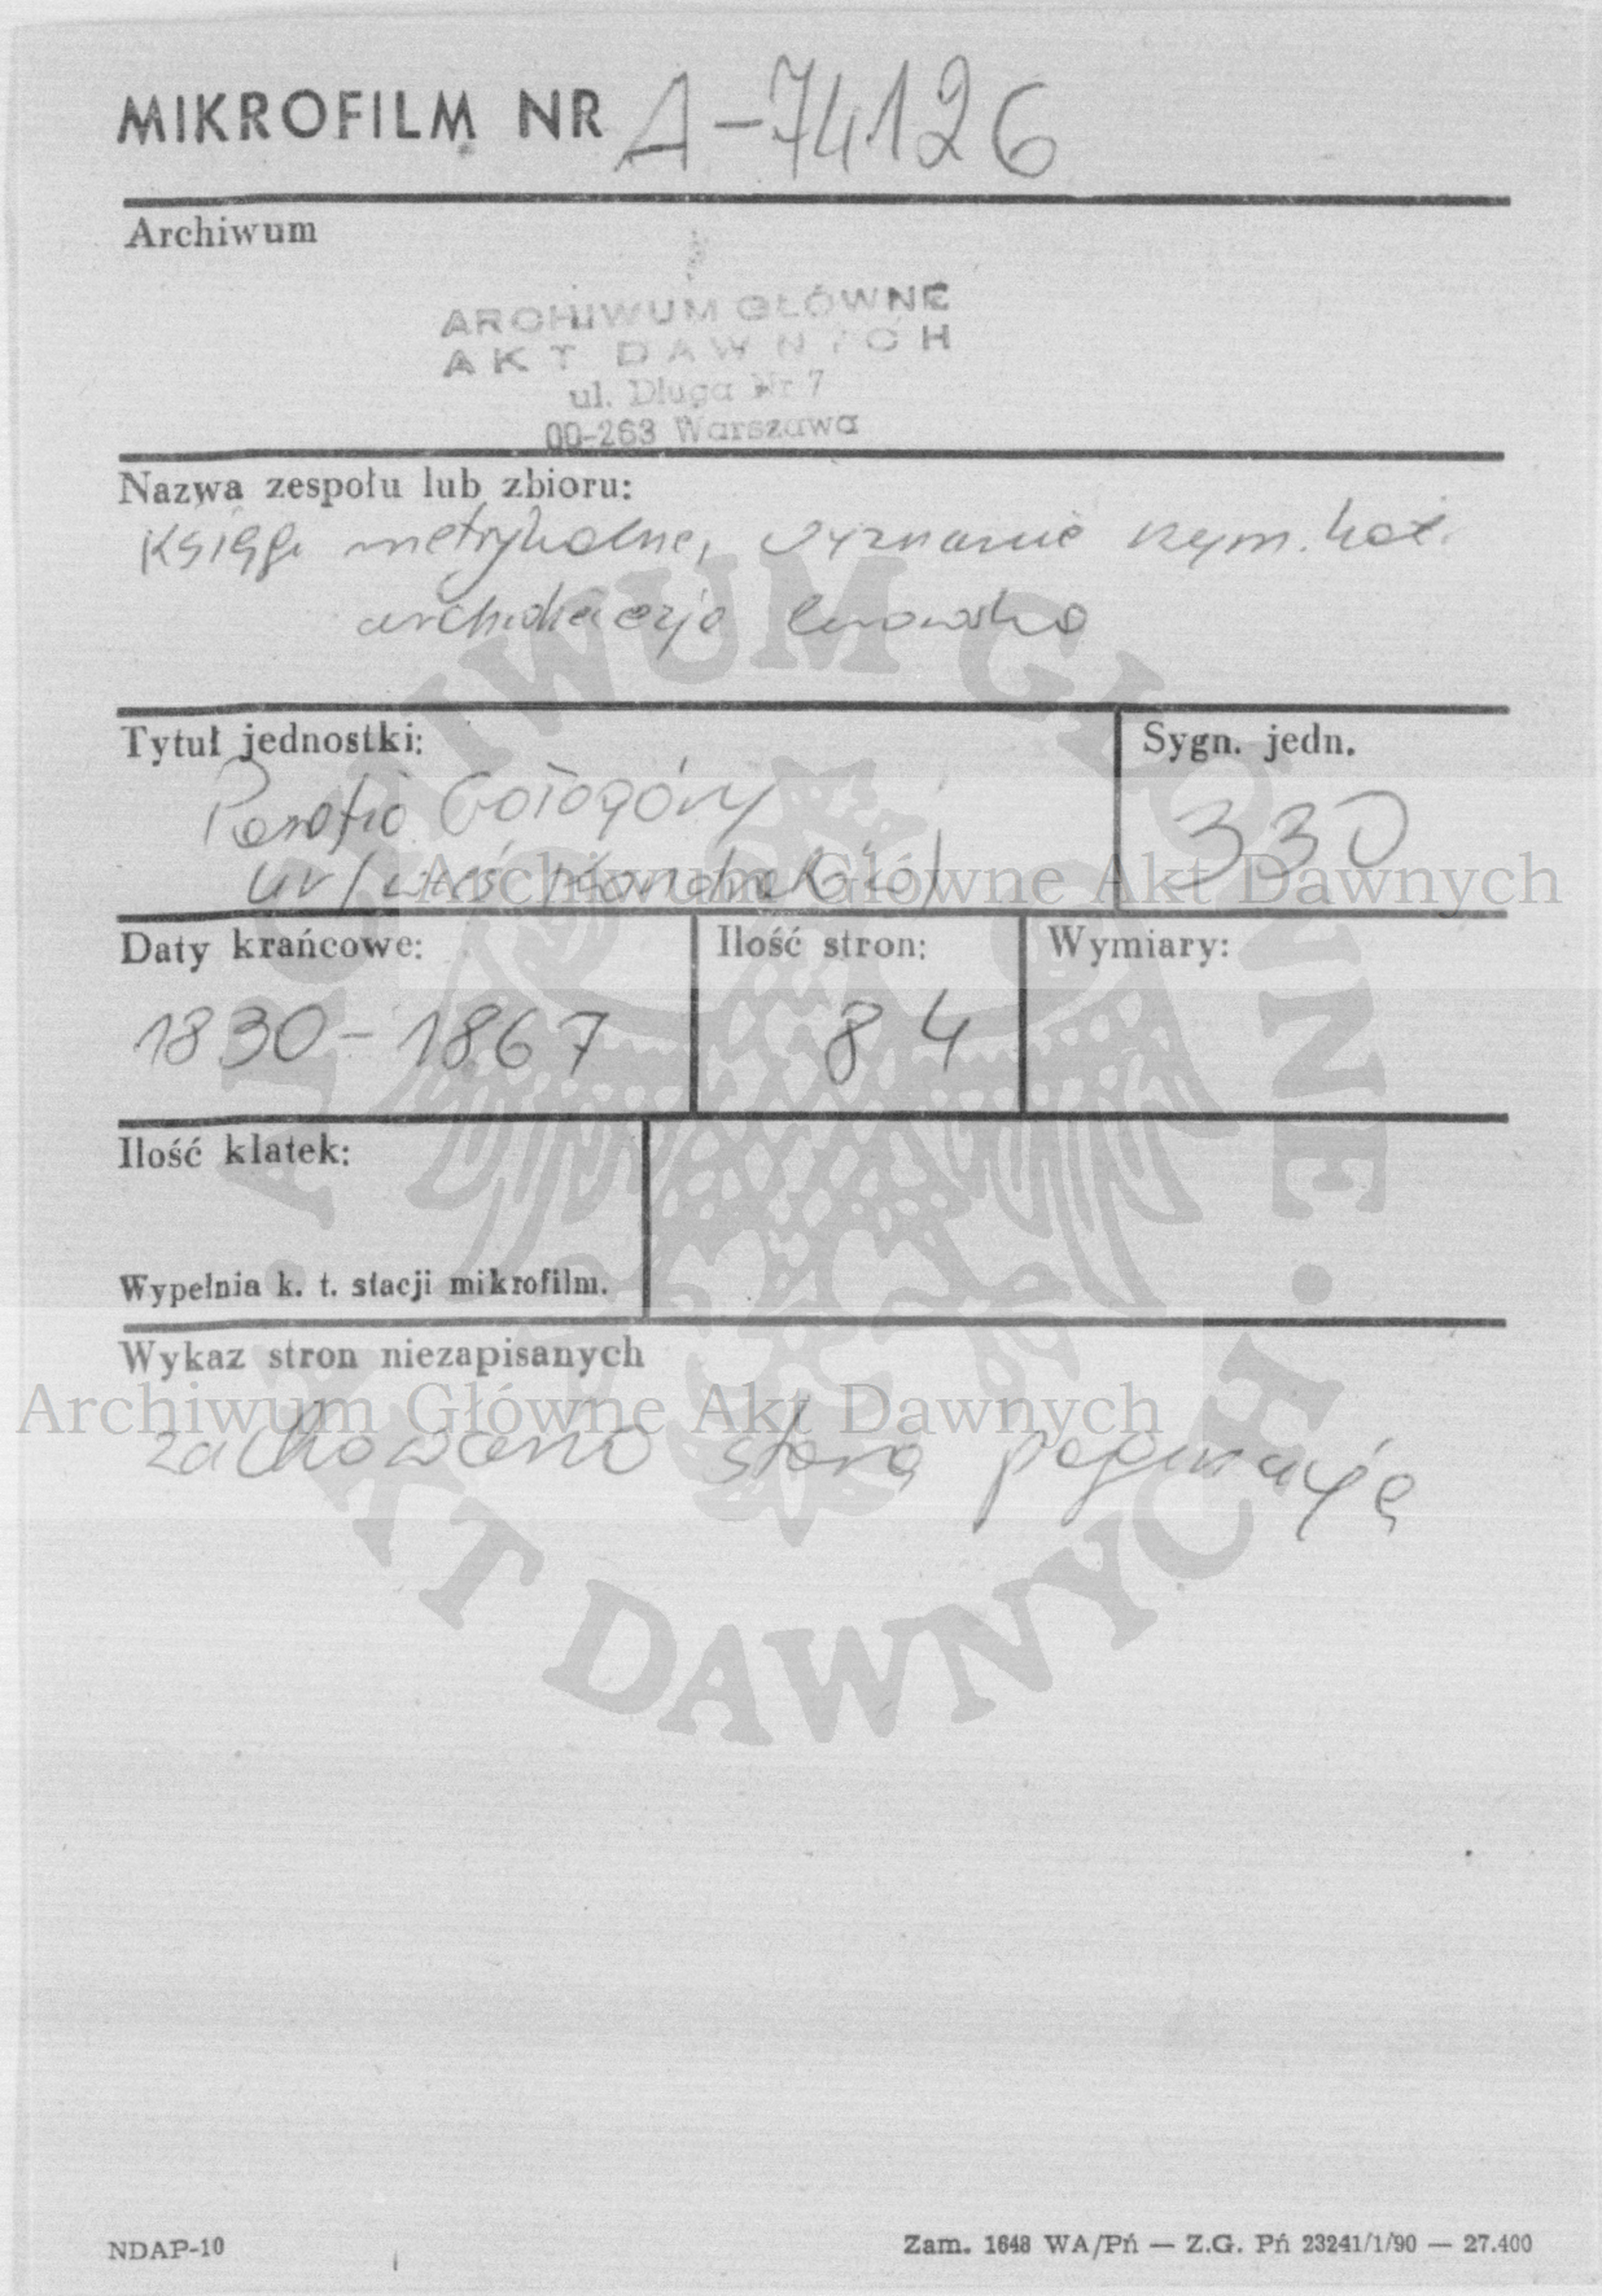 MIKROFILM NR A-74126
Archiwum
ARCHIWUM GŁÓWNE
AKT DAWNYCH
ul. Długa Nr 7
00-263 Warszawa
Nazwa zespołu lub zbioru:
Księgi metrykalne, wyznanie rzym. kat.
archidiecezja lwowska
Tytuł jednostki:
Sygn. jedn.
Parafia Gołogóry
330
ur/wieś Kondratów/
Archiwum Główne Akt Dawnych
Daty krańcowe:
Ilość stron:
Wymiary:
1830-1867
84
Ilość klatek:
Wypełnia k. t. stacji mikrofilm.
Wykaz stron niezapisanych
Archiwum Główne Akt Dawnych
zachowano starą paginację
ARCHIWUM GŁÓWNE
AKT DAWNYCH
NDAP-10
Zam. 1648 WA/Pń — Z.G. Pń 23241/1/90 — 27.400